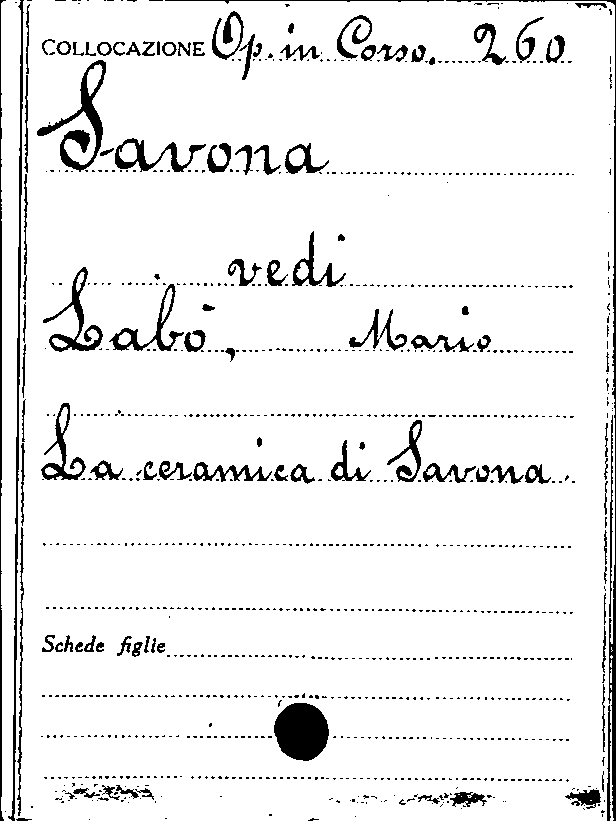 COLLOCAZIONE Op. in Corso. 260
Savona
vedi
Labò, Mario
La ceramica di Savona.
Schede figlie